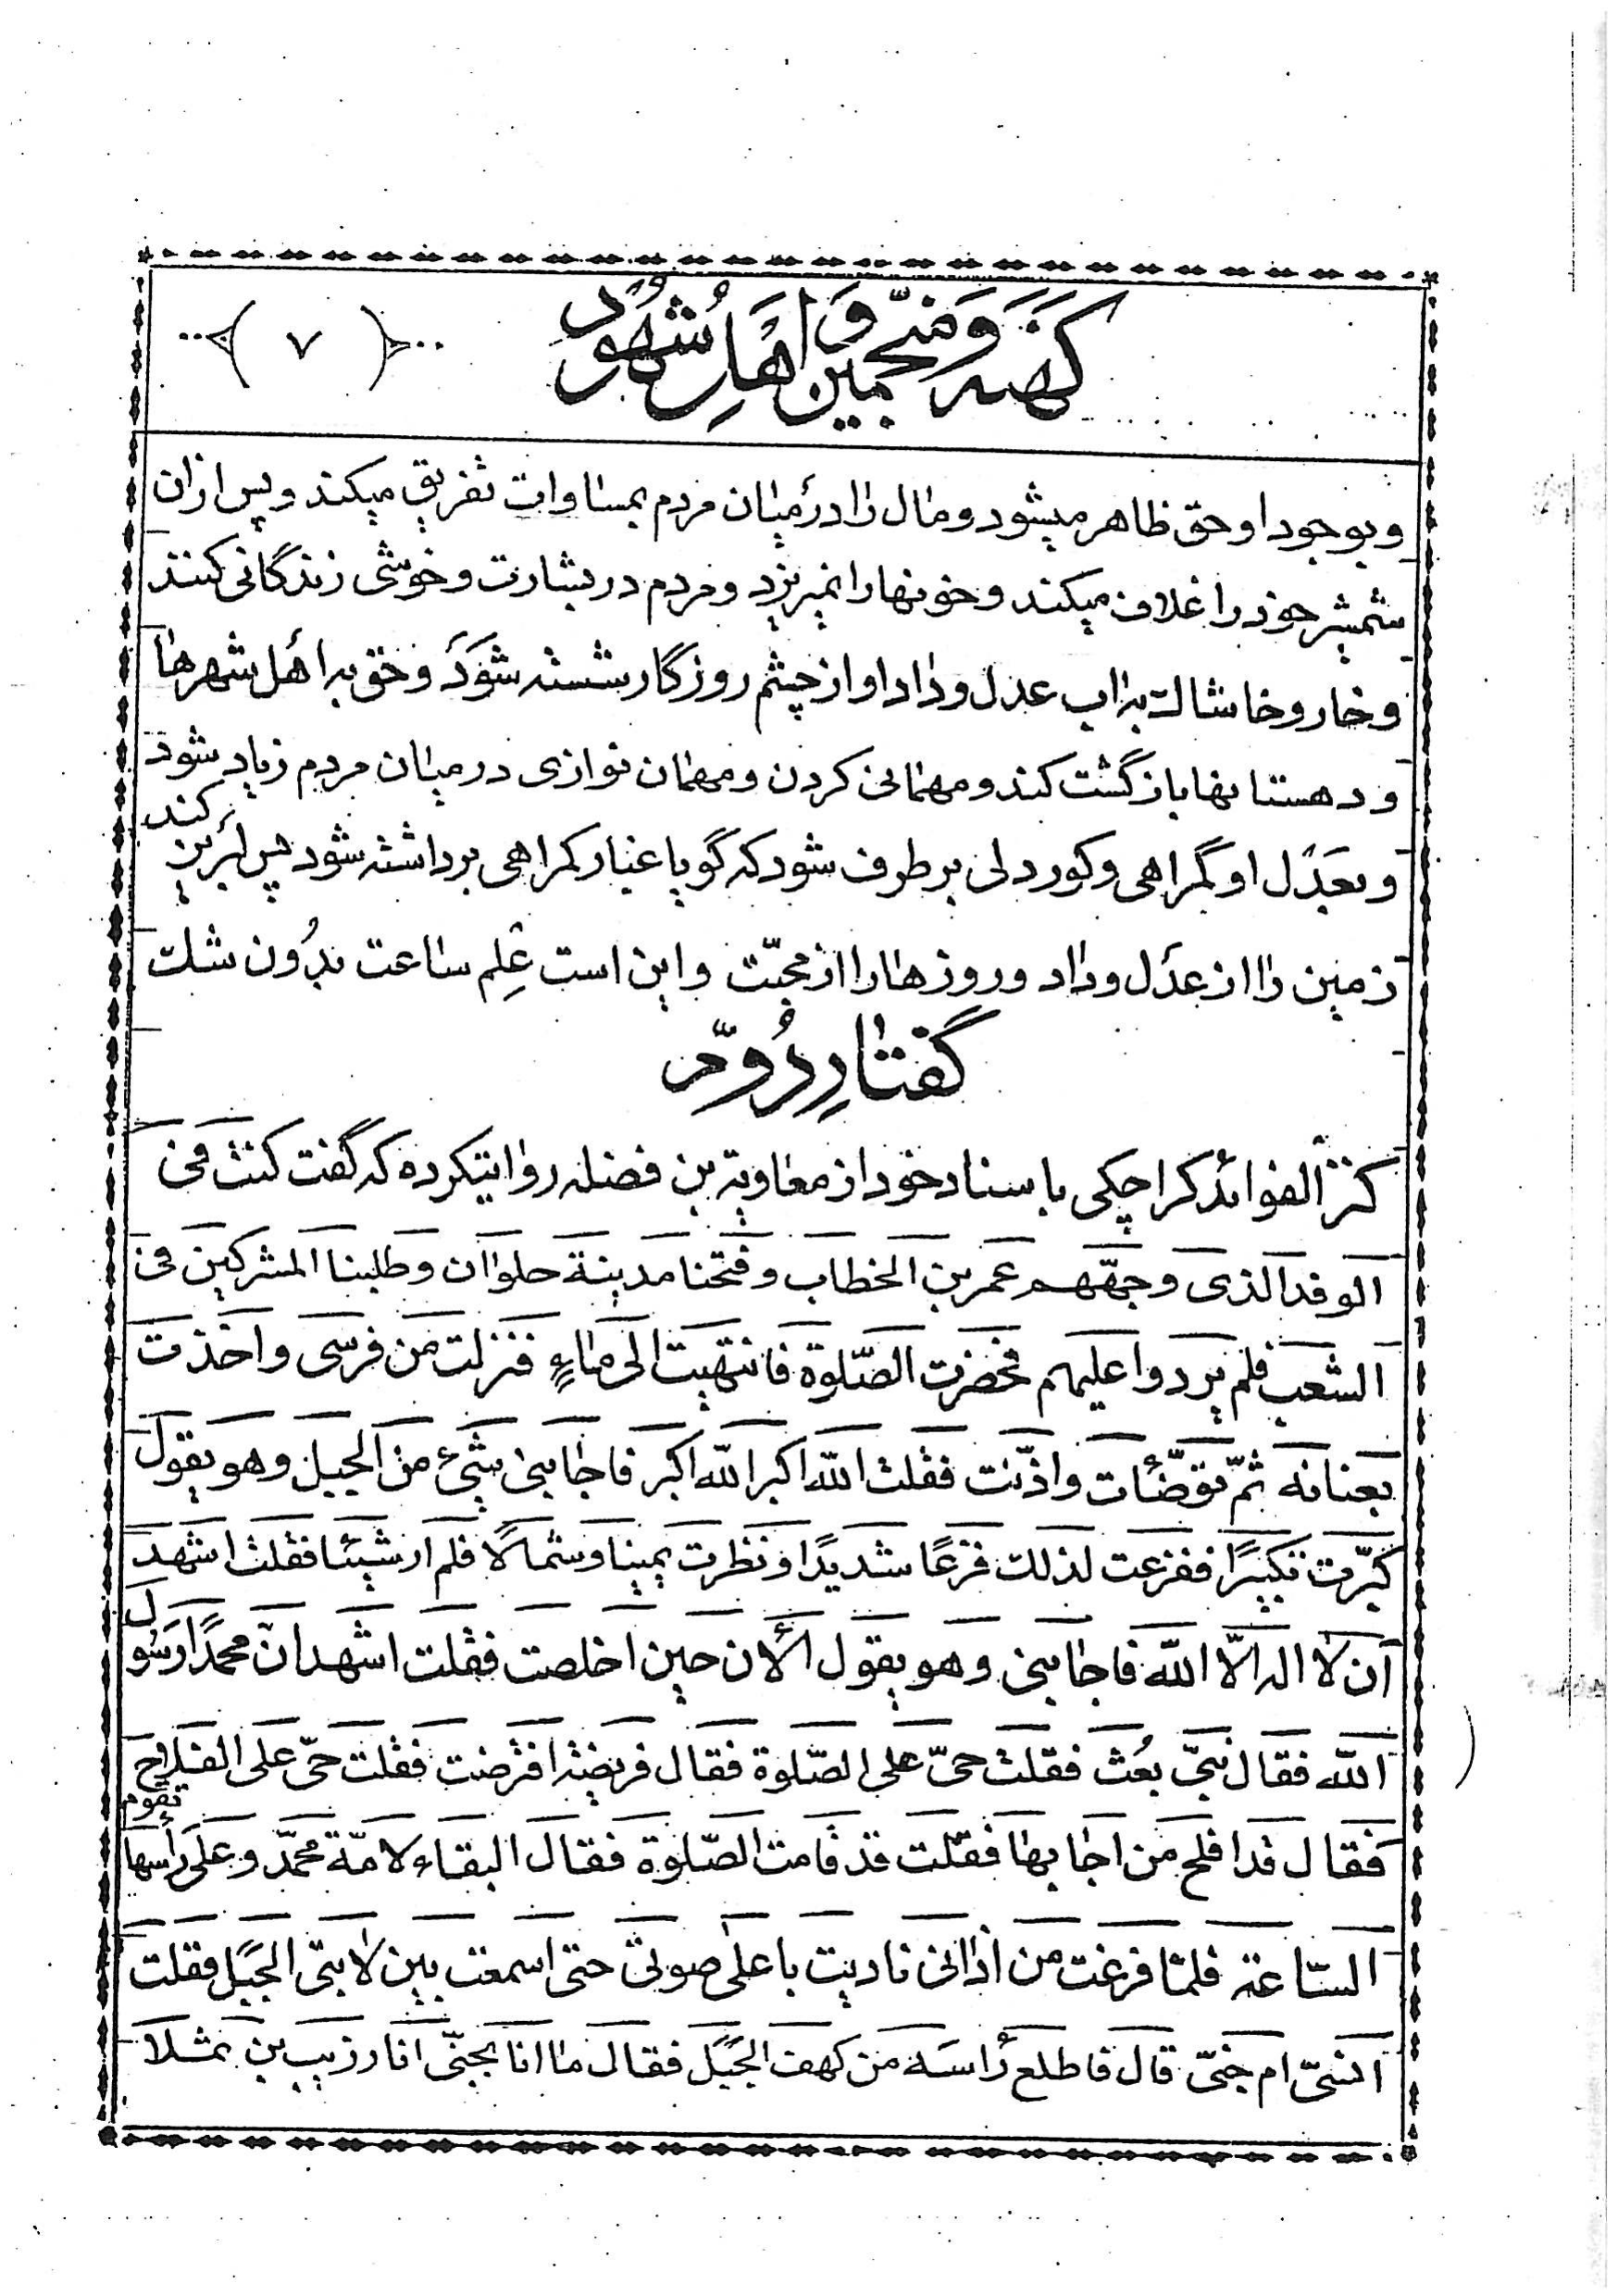 کهنه و منجّمین و اهلِ شهُود
(۷)
و بوجود او حق ظاهر میشود و مال را در میان مردم بمساوات تفریق میکند و پس از ان
شمشیر خود را غلاف میکند و خونها را نمیریزد و مردم در بشارت و خوشی زندگانی کنند
و خار و خاشاک به اب عدل و داد او از چشم روزگار شسته شَوَد و حق به اهل شهرها
و دهستانها بازگشت کند و مهمانی کردن و مهمان نوازی در میان مردم زیاد شود
و بعَدل او گمراهی و کوردلی بر طرف شود که گویا غبار گمراهی برداشته شود پس لبریز کند
زمین را از عدَل و داد و روزها را از محبّت و این است عِلم ساعت بدُون شک
گفتارِ دُوّم
کنز الفوائد کراجکی با سناد خود از معاویة بن فضله روایتکرده که گفت کنت فی
الوفد الذی وجّههم عمر بن الخطاب و فتحنا مدینة حلوان و طلبنا المشرکین فی
الشعب فلم یردوا علیهم فحضرت الصّلوة فانتهیت الی ماءٍ فنزلت من فرسی و اخذت
بعنانه ثمّ توضّئات و اذّنت فقلت اللّه اکبر اللّه اکبر فاجابنی شیء من الجبل و هو یقول
کبّرت تکبیرًا ففزعت لذلک فزعًا شدیدًا و نظرت یمینا و شمالًا فلم ار شیئا فقلت اشهد
ان لا اله الّا اللّه فاجابنی و هو یقول الأن حین اخلصت فقلت اشهد انّ محمدًا رسول
اللّه فقال نبیّ بعُث فقلت حیّ علی الصّلوة فقال فریضة افترضت فقلت حیّ علی الفلاح
فقال قد افلح من اجابها فقلت قد قامت الصّلوة فقال البقاء لامّة محمّد و علی رأسها تقوم
السّاعة فلمّا فرغت من اذانی نادیت باعلی صوتی حتی اسمعت بین لابتی الجَبَل فقلت
انسیّ ام جنیّ قال فاطلع رأسه من کهف الجَبَل فقال ما انا بجنّی انا رزیب بن ثمشلا